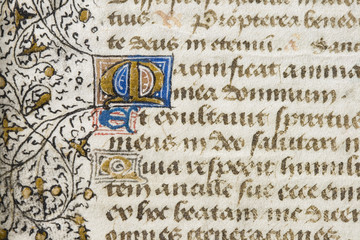 tius. Propterea bened
te deus in eternum. San
Magnificat anima
mea dominum
Et exultavit spiritus
meus in deo salutari
Quia respexit humili
tem ancille sue ecce eni
ex hoc beatam me dicen
omnes generationes